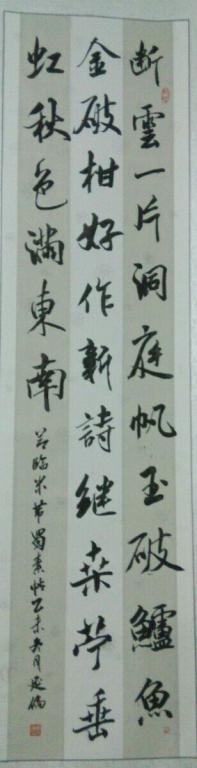 断雲一片洞庭帆玉破鱸魚
金破柑好作新詩継桑苧垂
虹秋色満東南
節臨米芾蜀素帖乙未